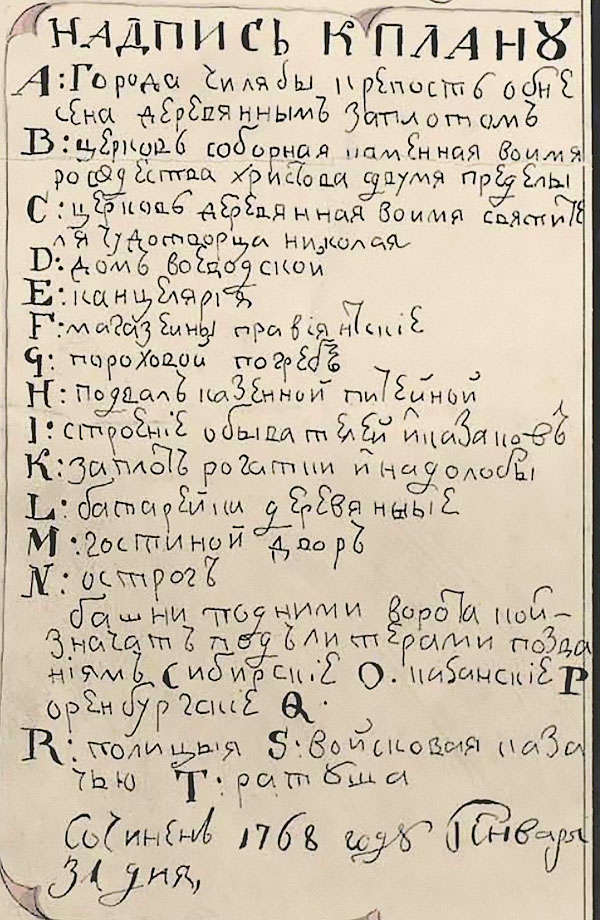 НАДПИСЬ К ПЛАНꙋ
A: Города Чилябы крепость обне
сена деревяннымъ заплотомъ
B: церковь соборная каменная воимя
рождества христова двумя пределы
C: церковь деревянная воимя святите
ля чудотворца николая
D: домъ воеводской
E: канцелярїя
F: магазеины правиянтскїе
G: пороховой погребъ
H: подвалъ казенной питейной
I: строенїе обывателей и казаковъ
K: заплотъ рогатки и надолобы
L: батарейки деревянные
M: гостиной дворъ
N: острогъ
башни подними ворота кои-
значатъ подълитерами позва
нїямъ Сибирскїе O. казанскїе P
оренбургскїе Q.
R: полицыя S: войсковая каза
чью T: ратꙋша
Сочиненъ 1768 годꙋ Генваря
31 дня,